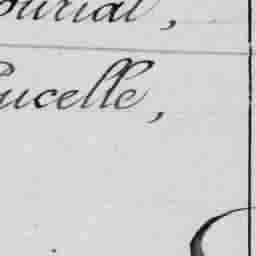 ourial,
ucelle,